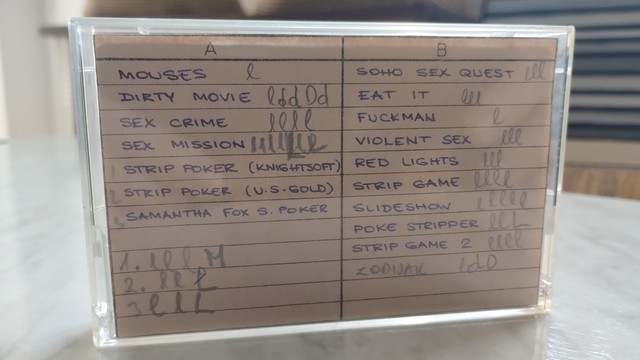 A
MOUSES l
DIRTY MOVIE lddDd
SEX CRIME llll
SEX MISSION
1 STRIP POKER (KNIGHTSOFT)
2 STRIP POKER (U.S.GOLD)
3 SAMANTHA FOX S. POKER
1. lllM
2. lll
3 lllL
B
SOHO SEX QUEST lll
EAT IT lll
FUCKMAN l
VIOLENT SEX lll
RED LIGHTS lll
STRIP GAME llll
SLIDESHOW lllll
POKE STRIPPER lllL
STRIP GAME 2 llll
ZODIJAK ldD